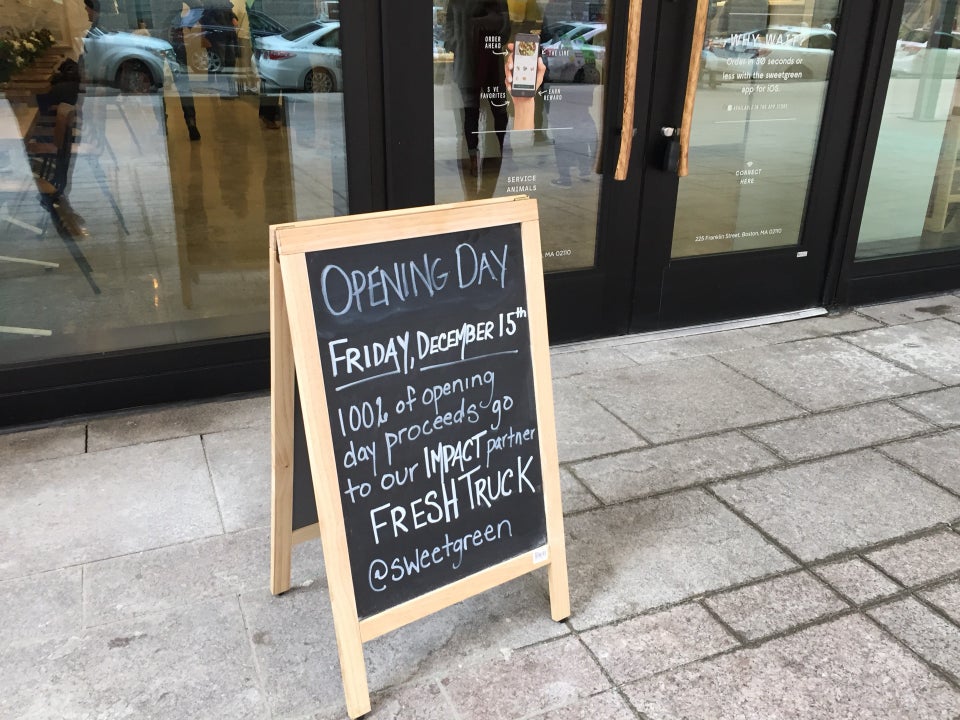 OPENING DAY
FRIDAY, DECEMBER 15th
100% of opening
day proceeds go
to our IMPACT partner
FRESH TRUCK
@sweetgreen
ORDER
AHEAD
THE LINE
FAVORITES
EARN
REWARD
SERVICE
ANIMALS
MA 02110
WHY WAIT?
Order in 30 seconds or
less with the sweetgreen
app for iOS.
AVAILABLE IN THE APP STORE
CONNECT
HERE
225 Franklin Street, Boston, MA 02110